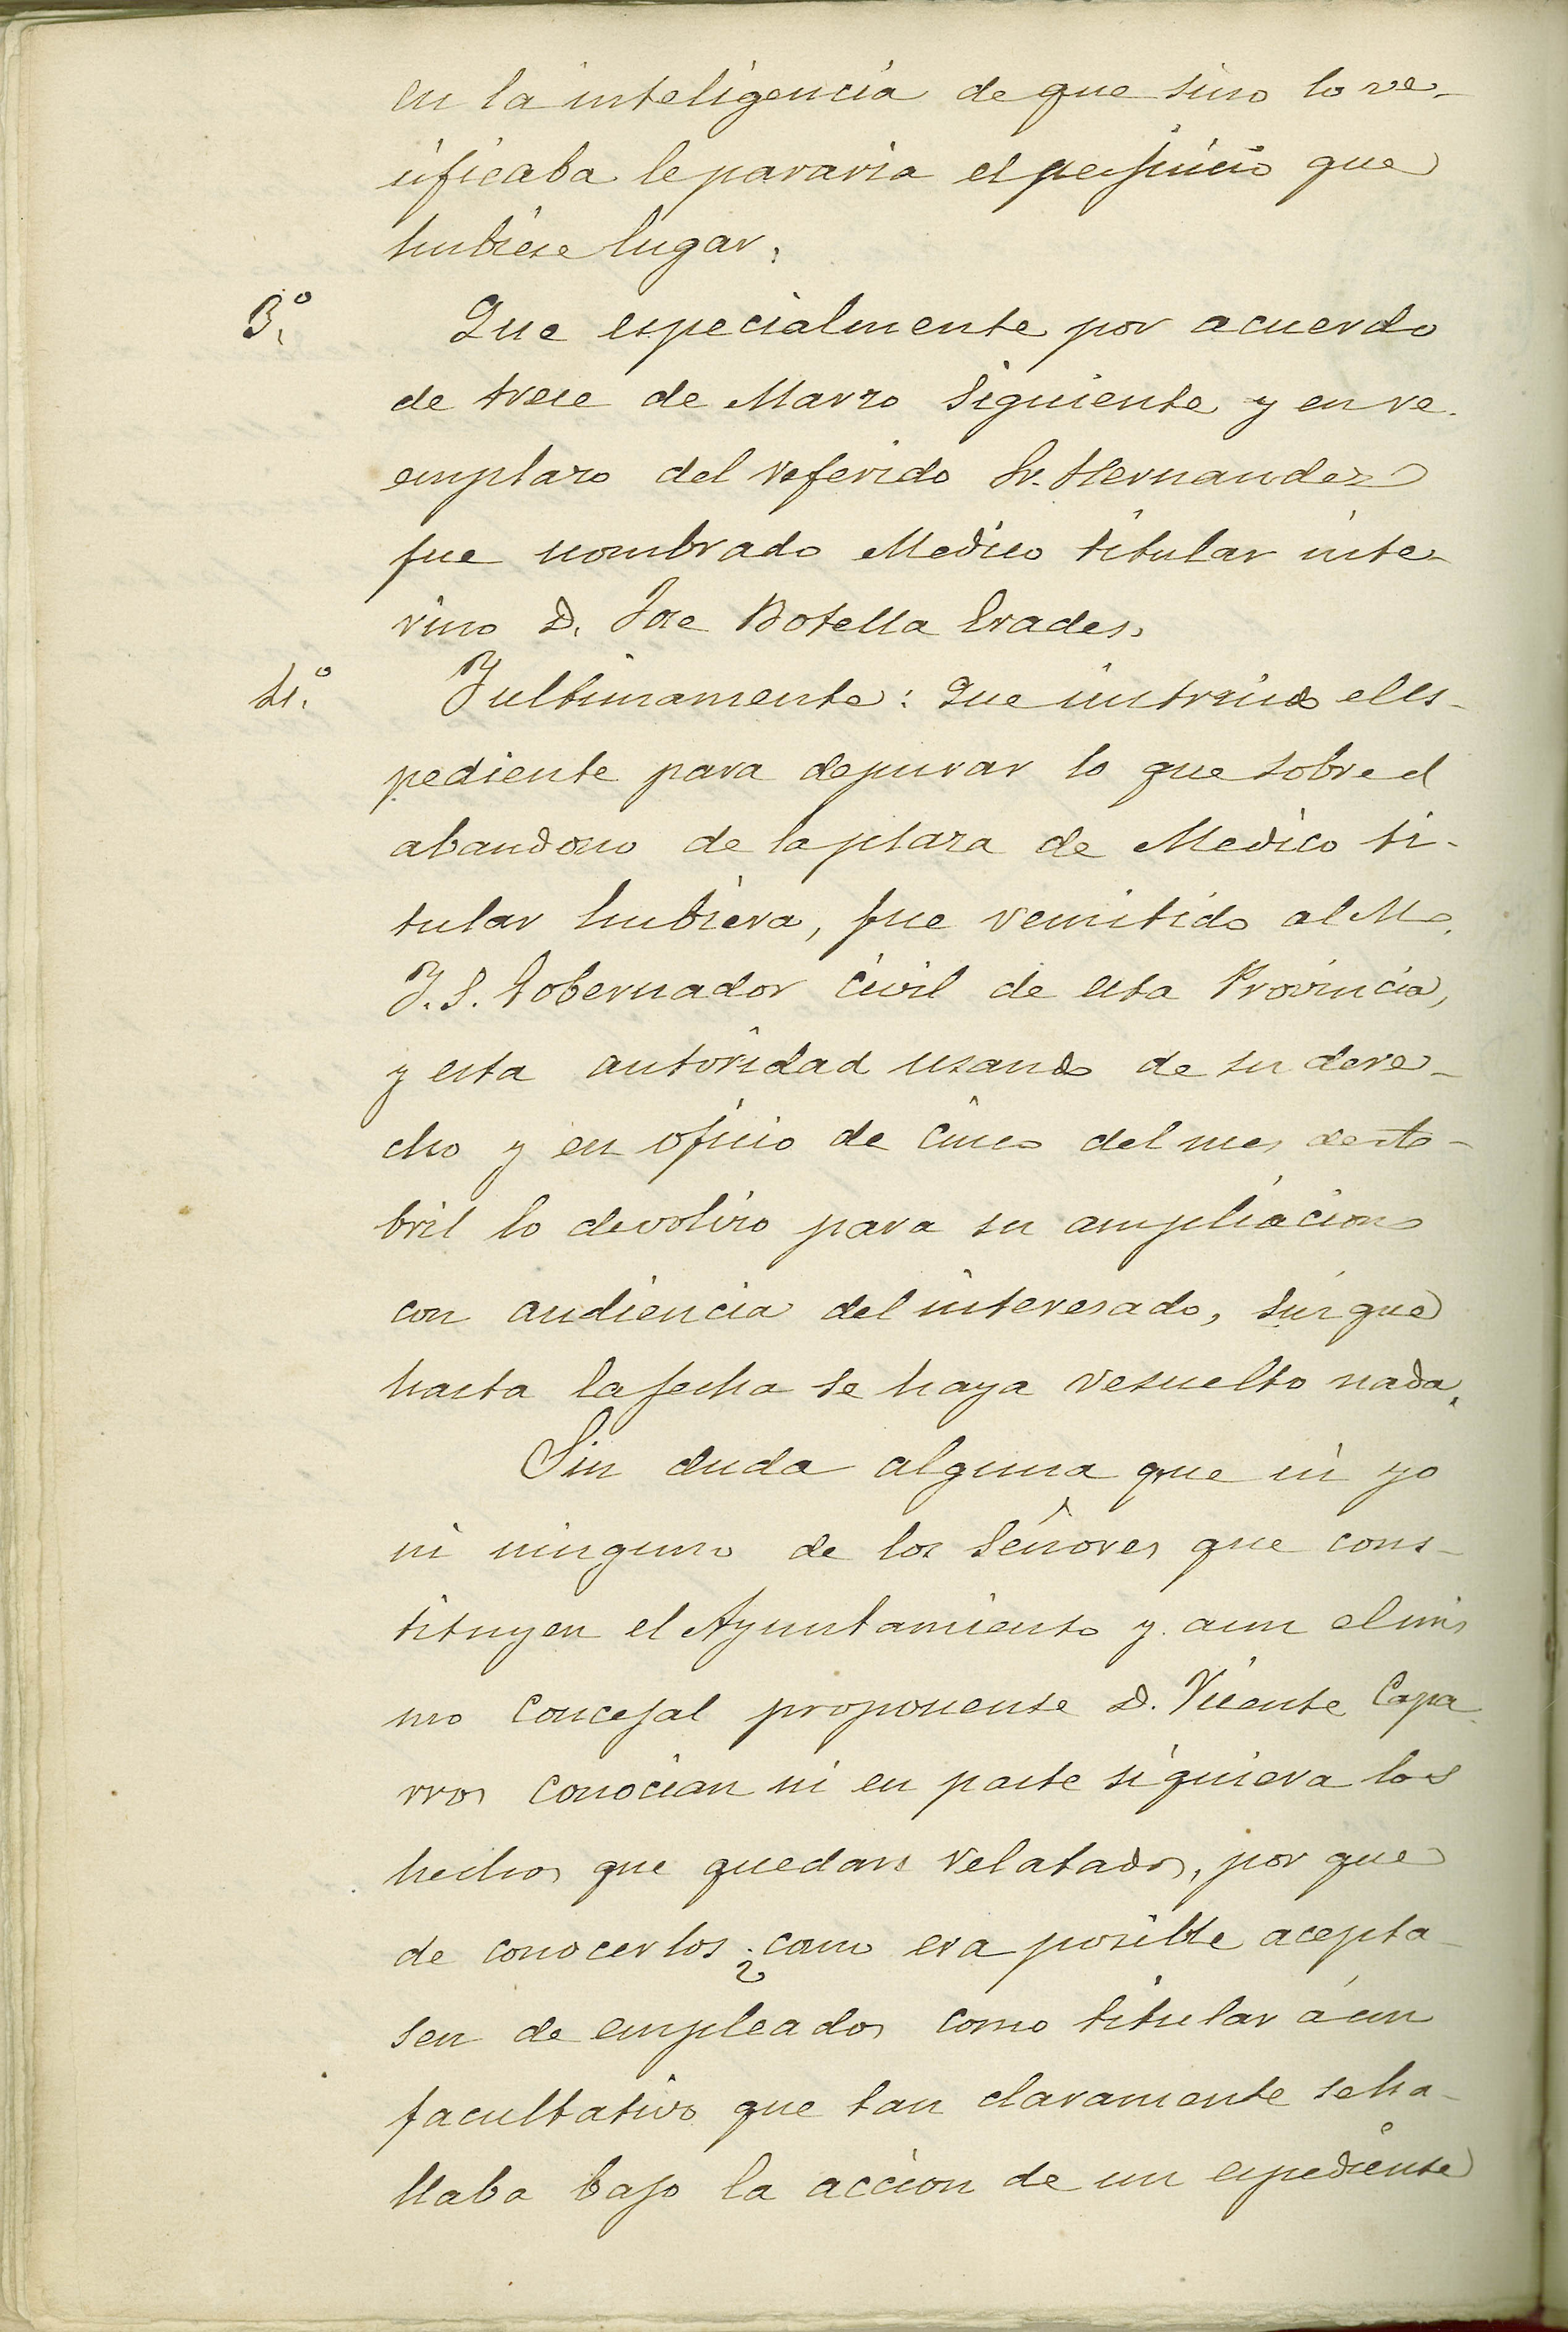 en la inteligencia de que sino lo ve-
rificaba le pararia el perjuicio que
hubiese lugar.
3.º Que especialmente por acuerdo
de trece de Marzo siguiente y en re-
emplazo del referido Sr. Hernandez
fue nombrado Medico titular inte-
rino D. Jose Botella Erades.
4.º Y ultimamente: Que instruido el es-
pediente para depurar lo que sobre el
abandono de la plaza de Medico ti-
tular hubiera, fue remitido al M.
Y. S. Gobernador Civil de esta Provincia,
y esta autoridad usando de su dere-
cho y en oficio de cinco del mes de A-
bril lo devolvio para su ampliacion
con audiencia del interesado, sin que
hasta la fecha se haya resuelto nada.
Sin duda alguna que ni yo
ni ninguno de los Señores que cons-
tituyen el Ayuntamiento y aun el mis
mo Concejal proponente D. Vicente Capa
rros conocian ni en parte siquiera los
hechos que quedan relatados, por que
de conocerlos ¿como era posible acepta-
sen de empleados como titular á un
facultativo que tan claramente se ha-
llaba bajo la accion de un espediente